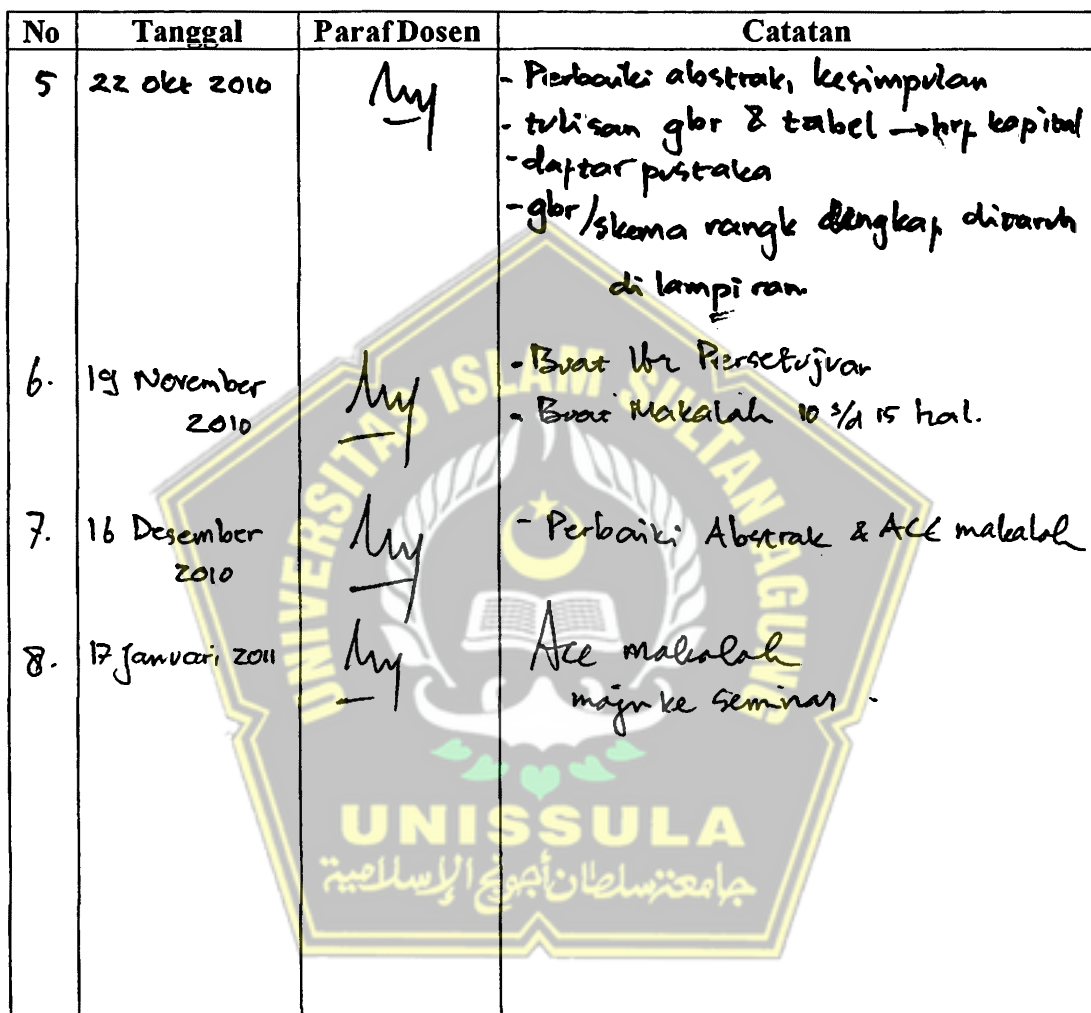 No Tanggal Paraf Dosen Catatan
5 22 okt 2010 - Perbaiki abstrak, kesimpulan
- tulisan gbr & tabel → hrf kapital
- daftar pustaka
- gbr/skema rangk lengkap ditaruh
di lampiran.
6. 19 November - Buat lbr Persetujuan
2010 - Buat Makalah 10 s/d 15 hal.
7. 16 Desember - Perbaiki Abstrak & ACC makalah
2010
8. 17 Januari 2011 Acc makalah
maju ke seminar.
UNIVERSITAS ISLAM SULTAN AGUNG
UNISSULA
جامعة سلطان أجونج الإسلامية